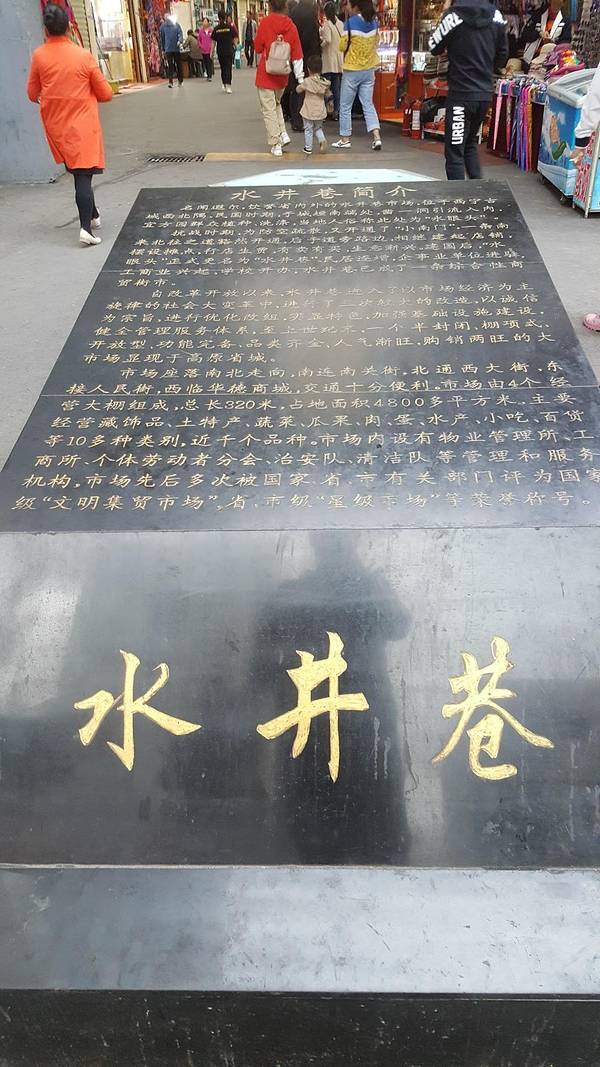 水井巷简介
名闻遐尔,饮誉省内外的水井巷市场,位于西宁古
城西北隅,民国时期,于城垣南端处,凿一洞引流入内,
宜方圆群众植种、洗涤,当地人俗称此处为"水眼头"。
抗战时期,为防空疏散,又开通了"小南门",一条南
来北往之道豁然开通,后于道旁路边,相继建起店铺
摆设摊点,行店坐贾,有卖有买,生意渐兴,建国后,"水
眼头"正式更名为"水井巷",民居造增,企事业单位进驻,
工商业兴起,学校开办,水井巷已成了一条综合性商
贸街市。
自改革开放以来,水井巷进入了以市场经济为主
旋律的社会大变革中,进行了三次较大的改造,以诚信
为宗旨,进行优化改组,突显特色,加强基础设施建设,
健全管理服务体系,至上世纪末,一个半封闭,棚项式,
开放型,功能完备,品类齐全,人气渐旺,购销两旺的大
市场显现于高原省城。
市场座落南北走向,南连南关街,北通西大街,东
接人民街,西临华德商城,交通十分便利。市场由4个经
营大棚组成,总长320米,占地面积4800多平方米,主要
经营藏饰品、土特产、蔬菜、瓜果、肉、蛋、水产、小吃、百货
等10多种类别,近千个品种。市场内设有物业管理所、工
商所、个体劳动者分会、治安队、清洁队等管理和服务
机构。市场先后多次被国家、省、市有关部门评为国家
级"文明集贸市场",省、市级"星级市场"等荣誉称号。
水井巷
URBAN